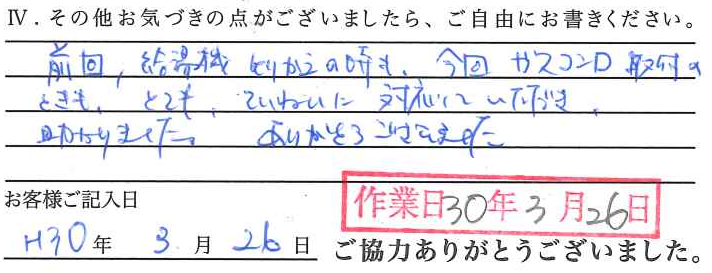 Ⅳ．その他お気づきの点がございましたら、ご自由にお書きください。
前回、給湯機 とりかえの時も、今回 ガスコンロ 取付の
ときも、とても、ていねいに 対応して いただき、
助かりました。 ありがとうございました
お客様ご記入日
作業日30年3月26日
H30年 3月26日 ご協力ありがとうございました。